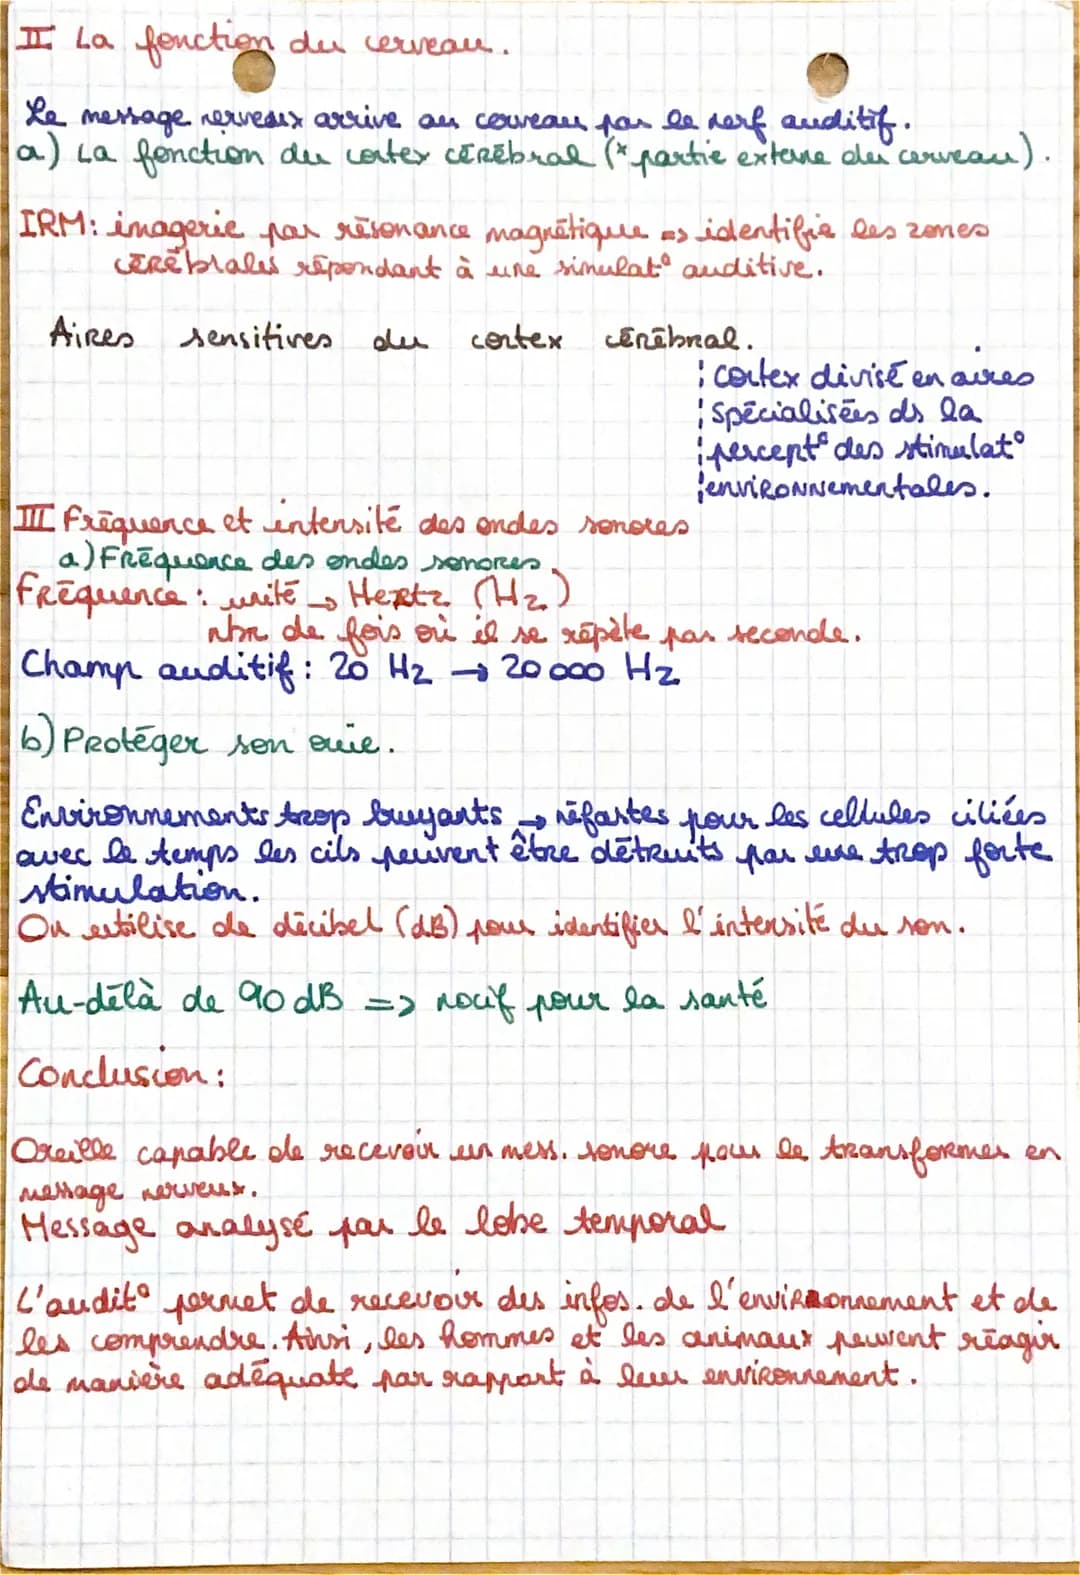 II La fonction du cerveau.
Le message nerveux arrive au cerveau par le nerf auditif.
a) La fonction du cortex cérébral (* partie externe du cerveau).
IRM: imagerie par résonance magnétique => identifie les zones
cérébrales répondant à une simulat° auditive.
Aires sensitives du cortex cérébral.
Cortex divisé en aires
spécialisées ds la
percept° des stimulat°
environnementales.
III Fréquence et intensité des ondes sonores
a) Fréquence des ondes sonores.
Fréquence : unité → Hertz (Hz)
nbr de fois où il se répète par seconde.
Champ auditif : 20 Hz → 20 000 Hz
b) Protéger son ouïe.
Environnements trop bruyants → néfastes pour les cellules ciliées
avec le temps les cils peuvent être détruits par une trop forte
stimulation.
On utilise de décibel (dB) pour identifier l'intensité du son.
Au-délà de 90 dB => nocif pour la santé
Conclusion :
Oreille capable de recevoir un mess. sonore pour le transformer en
message nerveux.
Message analysé par le lobe temporal
L'audit° permet de recevoir des infos. de l'environnement et de
les comprendre. Ainsi, les hommes et les animaux peuvent réagir
de manière adéquate par rapport à leur environnement.